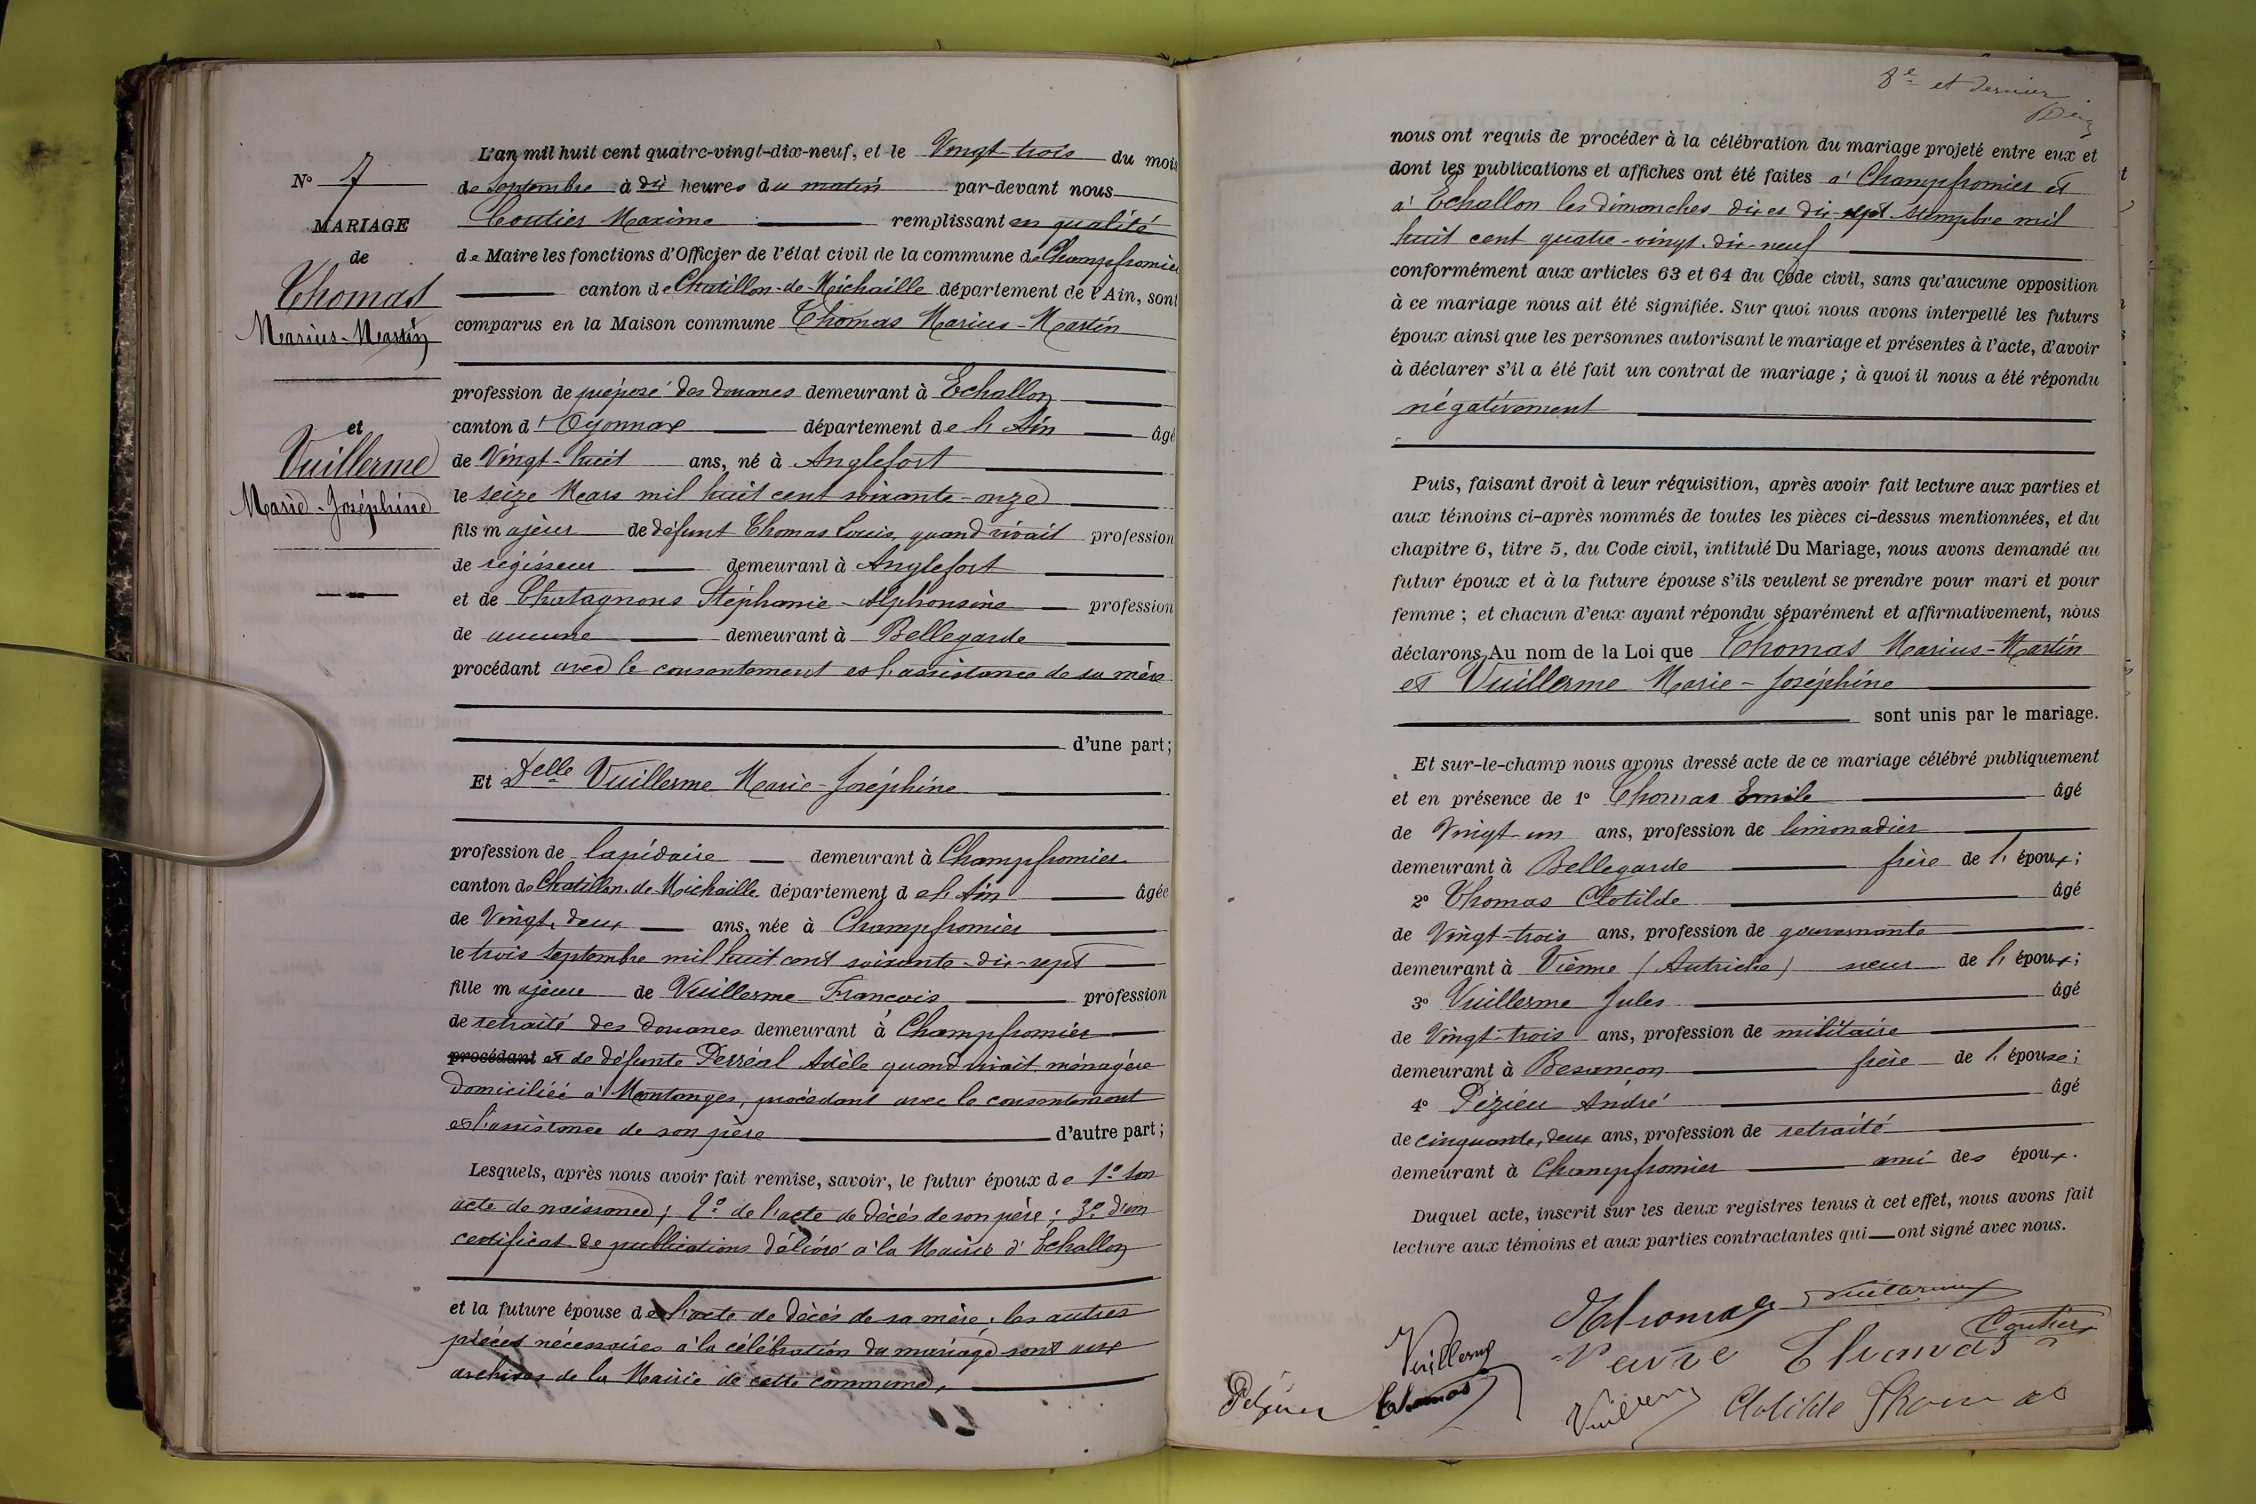 N° 7
MARIAGE
de
Thomas
Marius-Martin
et
Vuillerme
Marie-Joséphine
L'an mil huit cent quatre-vingt-dix-neuf, et le Vingt-trois du mois
de septembre à dix heures du matin par-devant nous
Coutier Maxime remplissant en qualité
de Maire les fonctions d'Officier de l'état civil de la commune de Champfromier
canton de Chatillon-de-Michaille département de l'Ain, sont
comparus en la Maison commune Thomas Marius-Martin
profession de préposé des douanes demeurant à Echallon
canton d'Oyonnax département de l'Ain âgé
de Vingt-huit ans, né à Anglefort
le seize Mars mil huit cent soixante-onze
fils majeur de défunt Thomas Louis, quand vivait profession
de régisseur demeurant à Anglefort
et de Chatagnons Stéphanie-Alphonsine profession
de aucune demeurant à Bellegarde
procédant avec le consentement et l'assistance de sa mère
d'une part;
Et Delle Vuillerme Marie-Joséphine
profession de lapidaire demeurant à Champfromier
canton de Chatillon-de-Michaille département de l'Ain âgée
de Vingt-deux ans, née à Champfromier
le trois septembre mil huit cent soixante-dix-sept
fille majeure de Vuillerme François profession
de retraité des douanes demeurant à Champfromier
procédant et de défunte Perréal Adèle quand vivait ménagère
domiciliée à Montanges, procédant avec le consentement
et l'assistance de son père d'autre part;
Lesquels, après nous avoir fait remise, savoir, le futur époux de 1° son
acte de naissance; 2° de l'acte de décès de son père; 3° d'un
certificat de publications délivré à la Mairie d'Echallon
et la future épouse de l'acte de décès de sa mère; les autres
pièces nécessaires à la célébration du mariage sont aux
archives de la Mairie de cette commune,
8e et dernier
nous ont requis de procéder à la célébration du mariage projeté entre eux et
dont les publications et affiches ont été faites à Champfromier et
à Echallon les dimanches dix et dix-sept septembre mil
huit cent quatre-vingt-dix-neuf
conformément aux articles 63 et 64 du Code civil, sans qu'aucune opposition
à ce mariage nous ait été signifiée. Sur quoi nous avons interpellé les futurs
époux ainsi que les personnes autorisant le mariage et présentes à l'acte, d'avoir
à déclarer s'il a été fait un contrat de mariage; à quoi il nous a été répondu
négativement
Puis, faisant droit à leur réquisition, après avoir fait lecture aux parties et
aux témoins ci-après nommés de toutes les pièces ci-dessus mentionnées, et du
chapitre 6, titre 5, du Code civil, intitulé Du Mariage, nous avons demandé au
futur époux et à la future épouse s'ils veulent se prendre pour mari et pour
femme; et chacun d'eux ayant répondu séparément et affirmativement, nous
déclarons Au nom de la Loi que Thomas Marius-Martin
et Vuillerme Marie-Joséphine
sont unis par le mariage.
Et sur-le-champ nous avons dressé acte de ce mariage célébré publiquement
et en présence de 1° Thomas Emile âgé
de Vingt-un ans, profession de limonadier
demeurant à Bellegarde frère de l'époux;
2° Thomas Clotilde âgé
de Vingt-trois ans, profession de gouvernante
demeurant à Vienne (Autriche) sœur de l'époux;
3° Vuillerme Jules âgé
de Vingt-trois ans, profession de militaire
demeurant à Besançon frère de l'épouse;
4° Pézieu André âgé
de cinquante-deux ans, profession de retraité
demeurant à Champfromier ami des époux.
Duquel acte, inscrit sur les deux registres tenus à cet effet, nous avons fait
lecture aux témoins et aux parties contractantes qui ont signé avec nous.
Mthomas Vuillerme
Coutier
Vuillerme Veuve Thomas
Thomas Clotilde Thomas